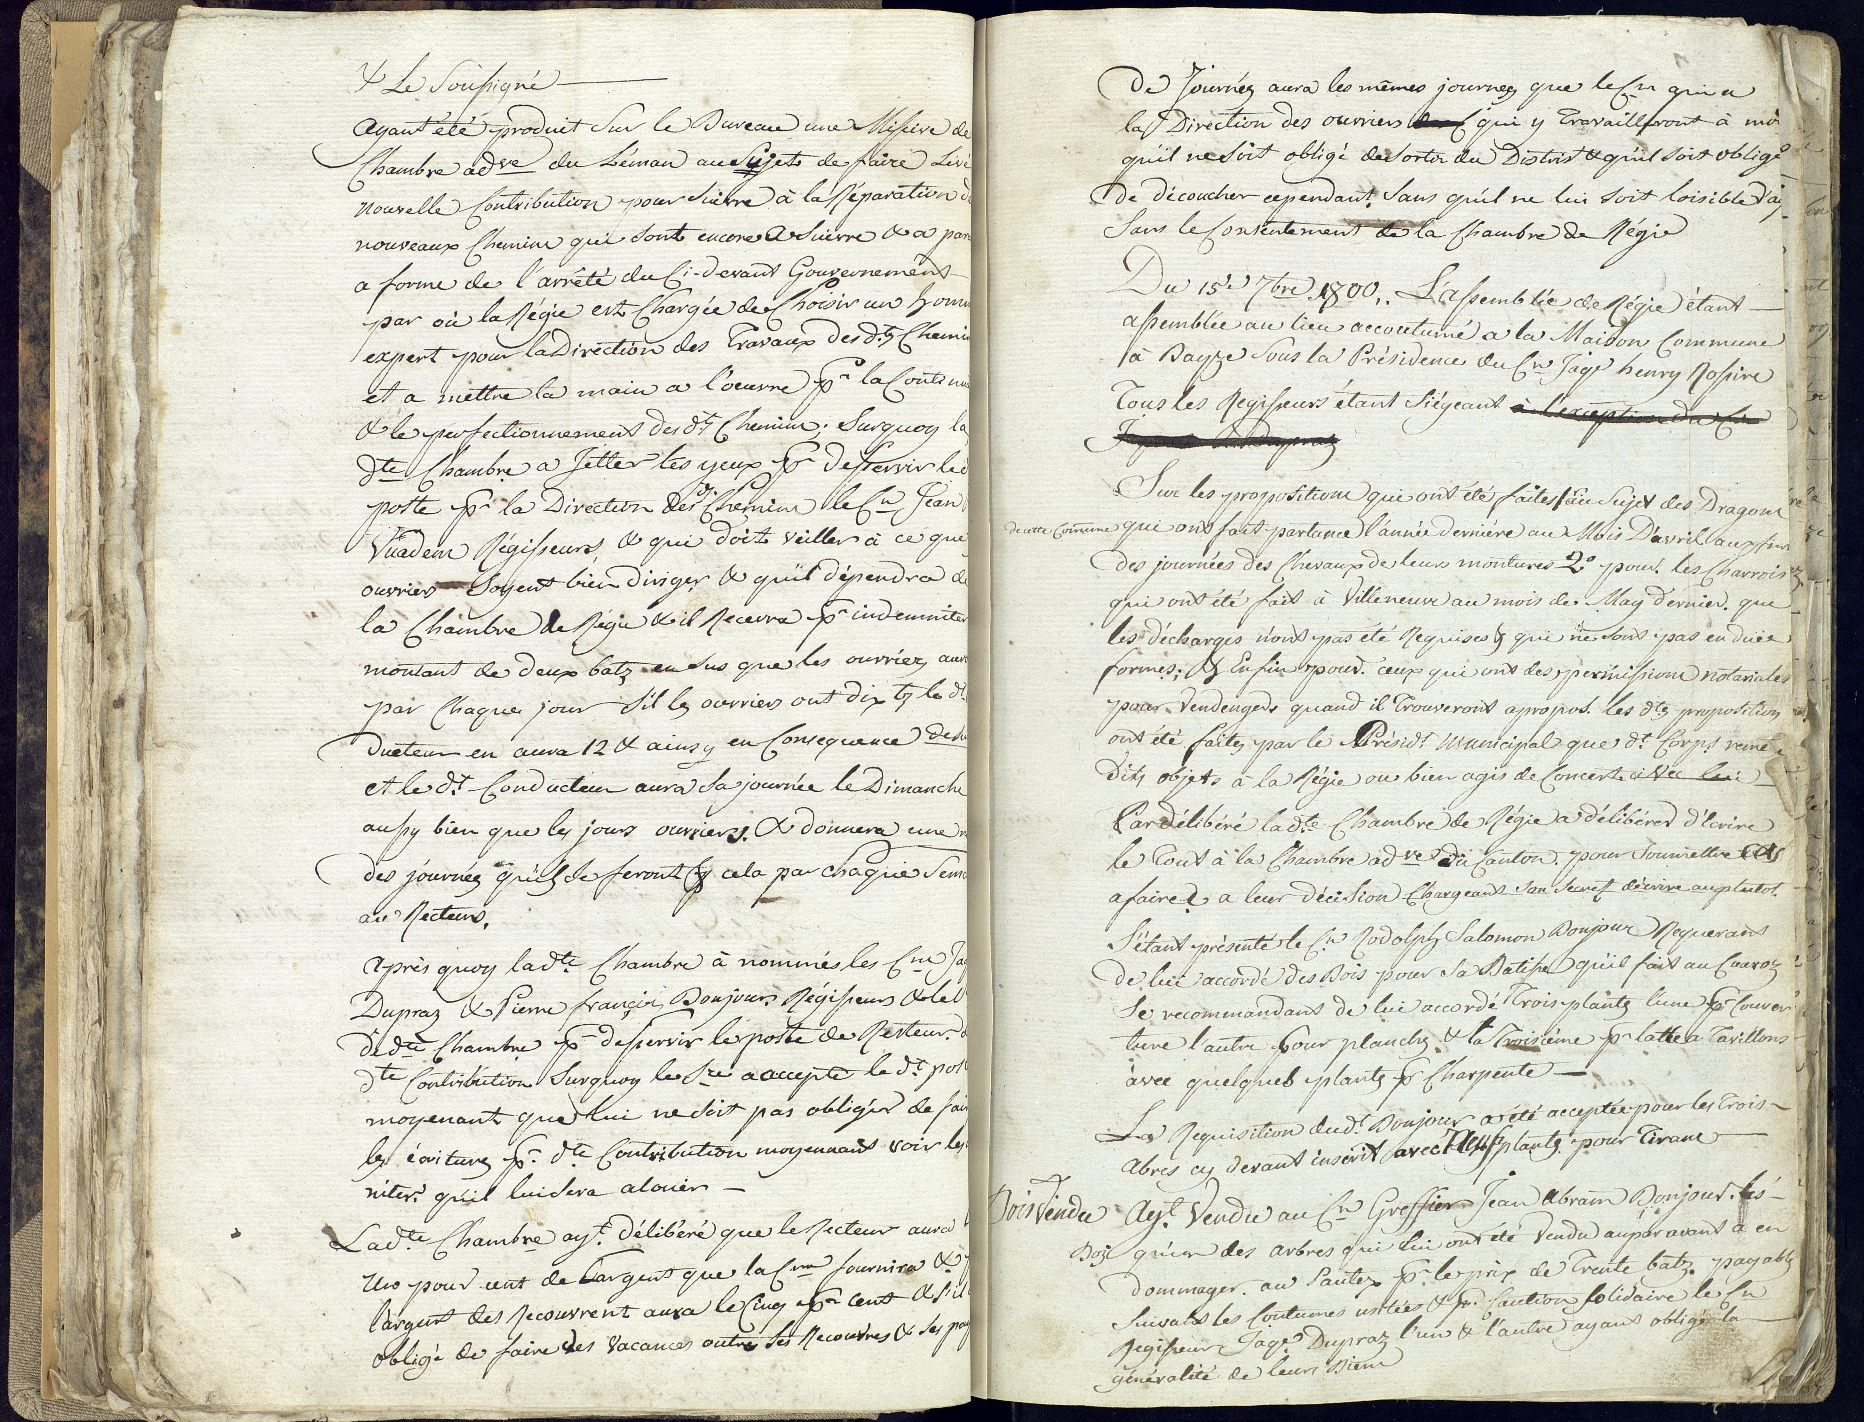 & Le Soussigné
ayant été produit sur le Bureau une Missive de
Chambre adve du Léman au Sujets de faire
nouvelle Contribution pour Suivre à la Réparation
nouveaux Chemins qui sont encore a Suivre & a
a forme de l'arrêté du Ci-devant Gouvernement
par où la Régie est Chargée de Choisir un homm
expert pour la Direction des Travaux des dts Chemin
et a mettre la main a l'oeuvre pr la Contin
& le perfectionnement des dts Chemins; Surquoy la
dte Chambre a Jetter les yeux pr desservir le
poste pr la Direction des Chemins le Cn Jean
Vuadens Régisseurs, & qui doit veiller à ce que
ouvriers Soyent bien diriger & qu'il dépendra de
la Chambre de Régie & il Recevra pr indemniter
montant de deux batz en sus que les ouvriers
par Chaque jour S'il les ouvriers ont dix bz le dt
ducteur en aura 12 & ainsy en Consequence
et le dt Conducteur aura sa journée le Dimanche
aussy bien que les jours ouvriers. & donnera une
des journées qu'ils se feront & cela par chaque Sem
au Recteurs.
après quoy la dte Chambre à nommés les Cns
Dupraz & Pierre françois Bonjour Régisseurs & le
de dte Chambre pr desservir le poste de Recteur
dte Contribution Surquoy le Sre a accepté le dt pos
moyenant que lui ne soit pas obliger de fai
les écritures pr dte Contribution moyennant voir les
niter qu'il lui sera alouer
La dte Chambre ayt délibéré que le Recteur aura
un pour cent de l'argent que la Cmne fournira &
l'argent des Recouvrent aura le Cinq pr cent & s'il
obligé de faire des vacances outre ses Recouvres & ses
de Journées aura les mêmes journées que le Cn qui a
la Direction des ouvriers qui y Travailleront à
qu'il ne soit obligé de sortir du District & qu'il soit obligé
de découcher cependant Sans qu'il ne lui soit loisible
Sans le Consentement de la Chambre de Régie
Du 15e 7bre 1800,. L'assemblée de Régie étant
assemblée au lieu accoutumé a la Maison Commune
à Bayze Sous la Présidence du Cn Jaqs henry Rossire
Tous les Regisseurs étant Siégeant à l'exception du Cn
Dupraz
Sur les propositions qui ont été faites au Sujet des Dragons
de cette Commune qui ont fait partance l'année dernière au Mois D'avril aux fins
des journées des Chevaux de leurs montures 2° pour les Charrois
qui ont été fait à Villeneuve au mois de May dernier. que
les décharges n'ont pas été Requises & qui ne sont pas en dues
formes; & Enfin pour ceux qui ont des permissions notariales
pour Vendenger quand il Trouveront apropos. les dts proposition
ont été faites par le Présidt Municipal que dt Corps
dits objets à la Régie ou bien agis de Concert avec lui
Par délibéré la dte Chambre de Régie a délibérer d'Ecrire
le Tout à la Chambre adve du Canton. pour soumettre
afaires a leur décision Chargeant son Secret d'écrire auplutot.
S'étant présenté le Cn Rodolph Salomon Bonjour Requerant
de lui accordé des Bois pour sa Batisse qu'il fait au
Se recommandant de lui accordé Trois plants l'une pr Couver
ture l'autre pour planches & la Troisième pr latte a Tavillons
avec quelques plants pr Charpente
La Requisition du dt Bonjour a été acceptée pour les Trois
abres cy devant inscrit avec Neuf plants pour Tirant
Bois Vendu Ayt Vendu au Cn Greffier Jean Abram Bonjour
Boz des arbres qui lui ont été Vendu auparavant a en
dommager au Sautex pr le prix de Trente batz. payable
Suivant les Coutumes usitées & pr Caution Solidaire le Cn
Regisseur Jaqs Dupraz l'un & l'autre ayant obligé la
généralité de leurs Biens